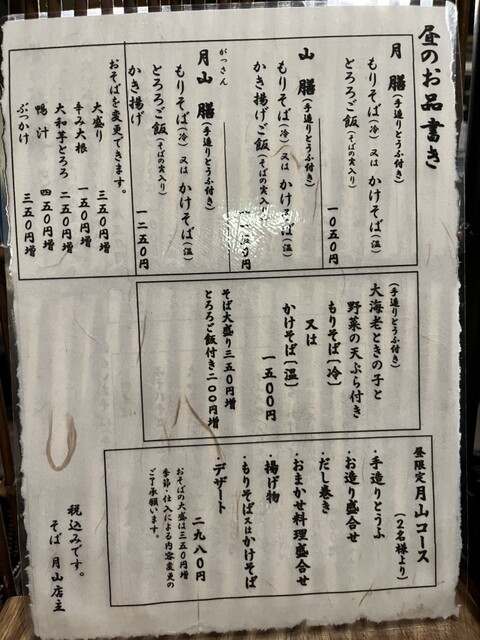 昼のお品書き
月 膳（手造りとうふ付き）
もりそば（冷）又は かけそば（温）
とろろご飯（そばの実入り）
一〇五〇円
山 膳（手造りとうふ付き）
もりそば（冷）又は かけそば（温）
かき揚げご飯（そばの実入り）
円
がっさん
月山 膳（手造りとうふ付き）
もりそば（冷）又は かけそば（温）
とろろご飯（そばの実入り）
かき揚げ
一二五〇円
おそばを変更できます。
大盛り 三五〇円増
辛み大根 一五〇円増
大和芋とろろ 二五〇円増
鴨汁 四五〇円増
ぶっかけ 三五〇円増
（手造りとうふ付き）
大海老ときの子と
野菜の天ぷら付き
もりそば（冷）
又は
かけそば（温）
一五〇〇円
そば大盛り三五〇円増
とろろご飯付き二〇〇円増
昼限定 月山コース
（２名様より）
・手造りとうふ
・お造り盛合せ
・だし巻き
・おまかせ料理盛合せ
・揚げ物
・もりそば又はかけそば
・デザート
二九八〇円
おそばの大盛は三五〇円増
季節・仕入による内容変更の
ご了承願います。
税込みです。
そば 月山店主